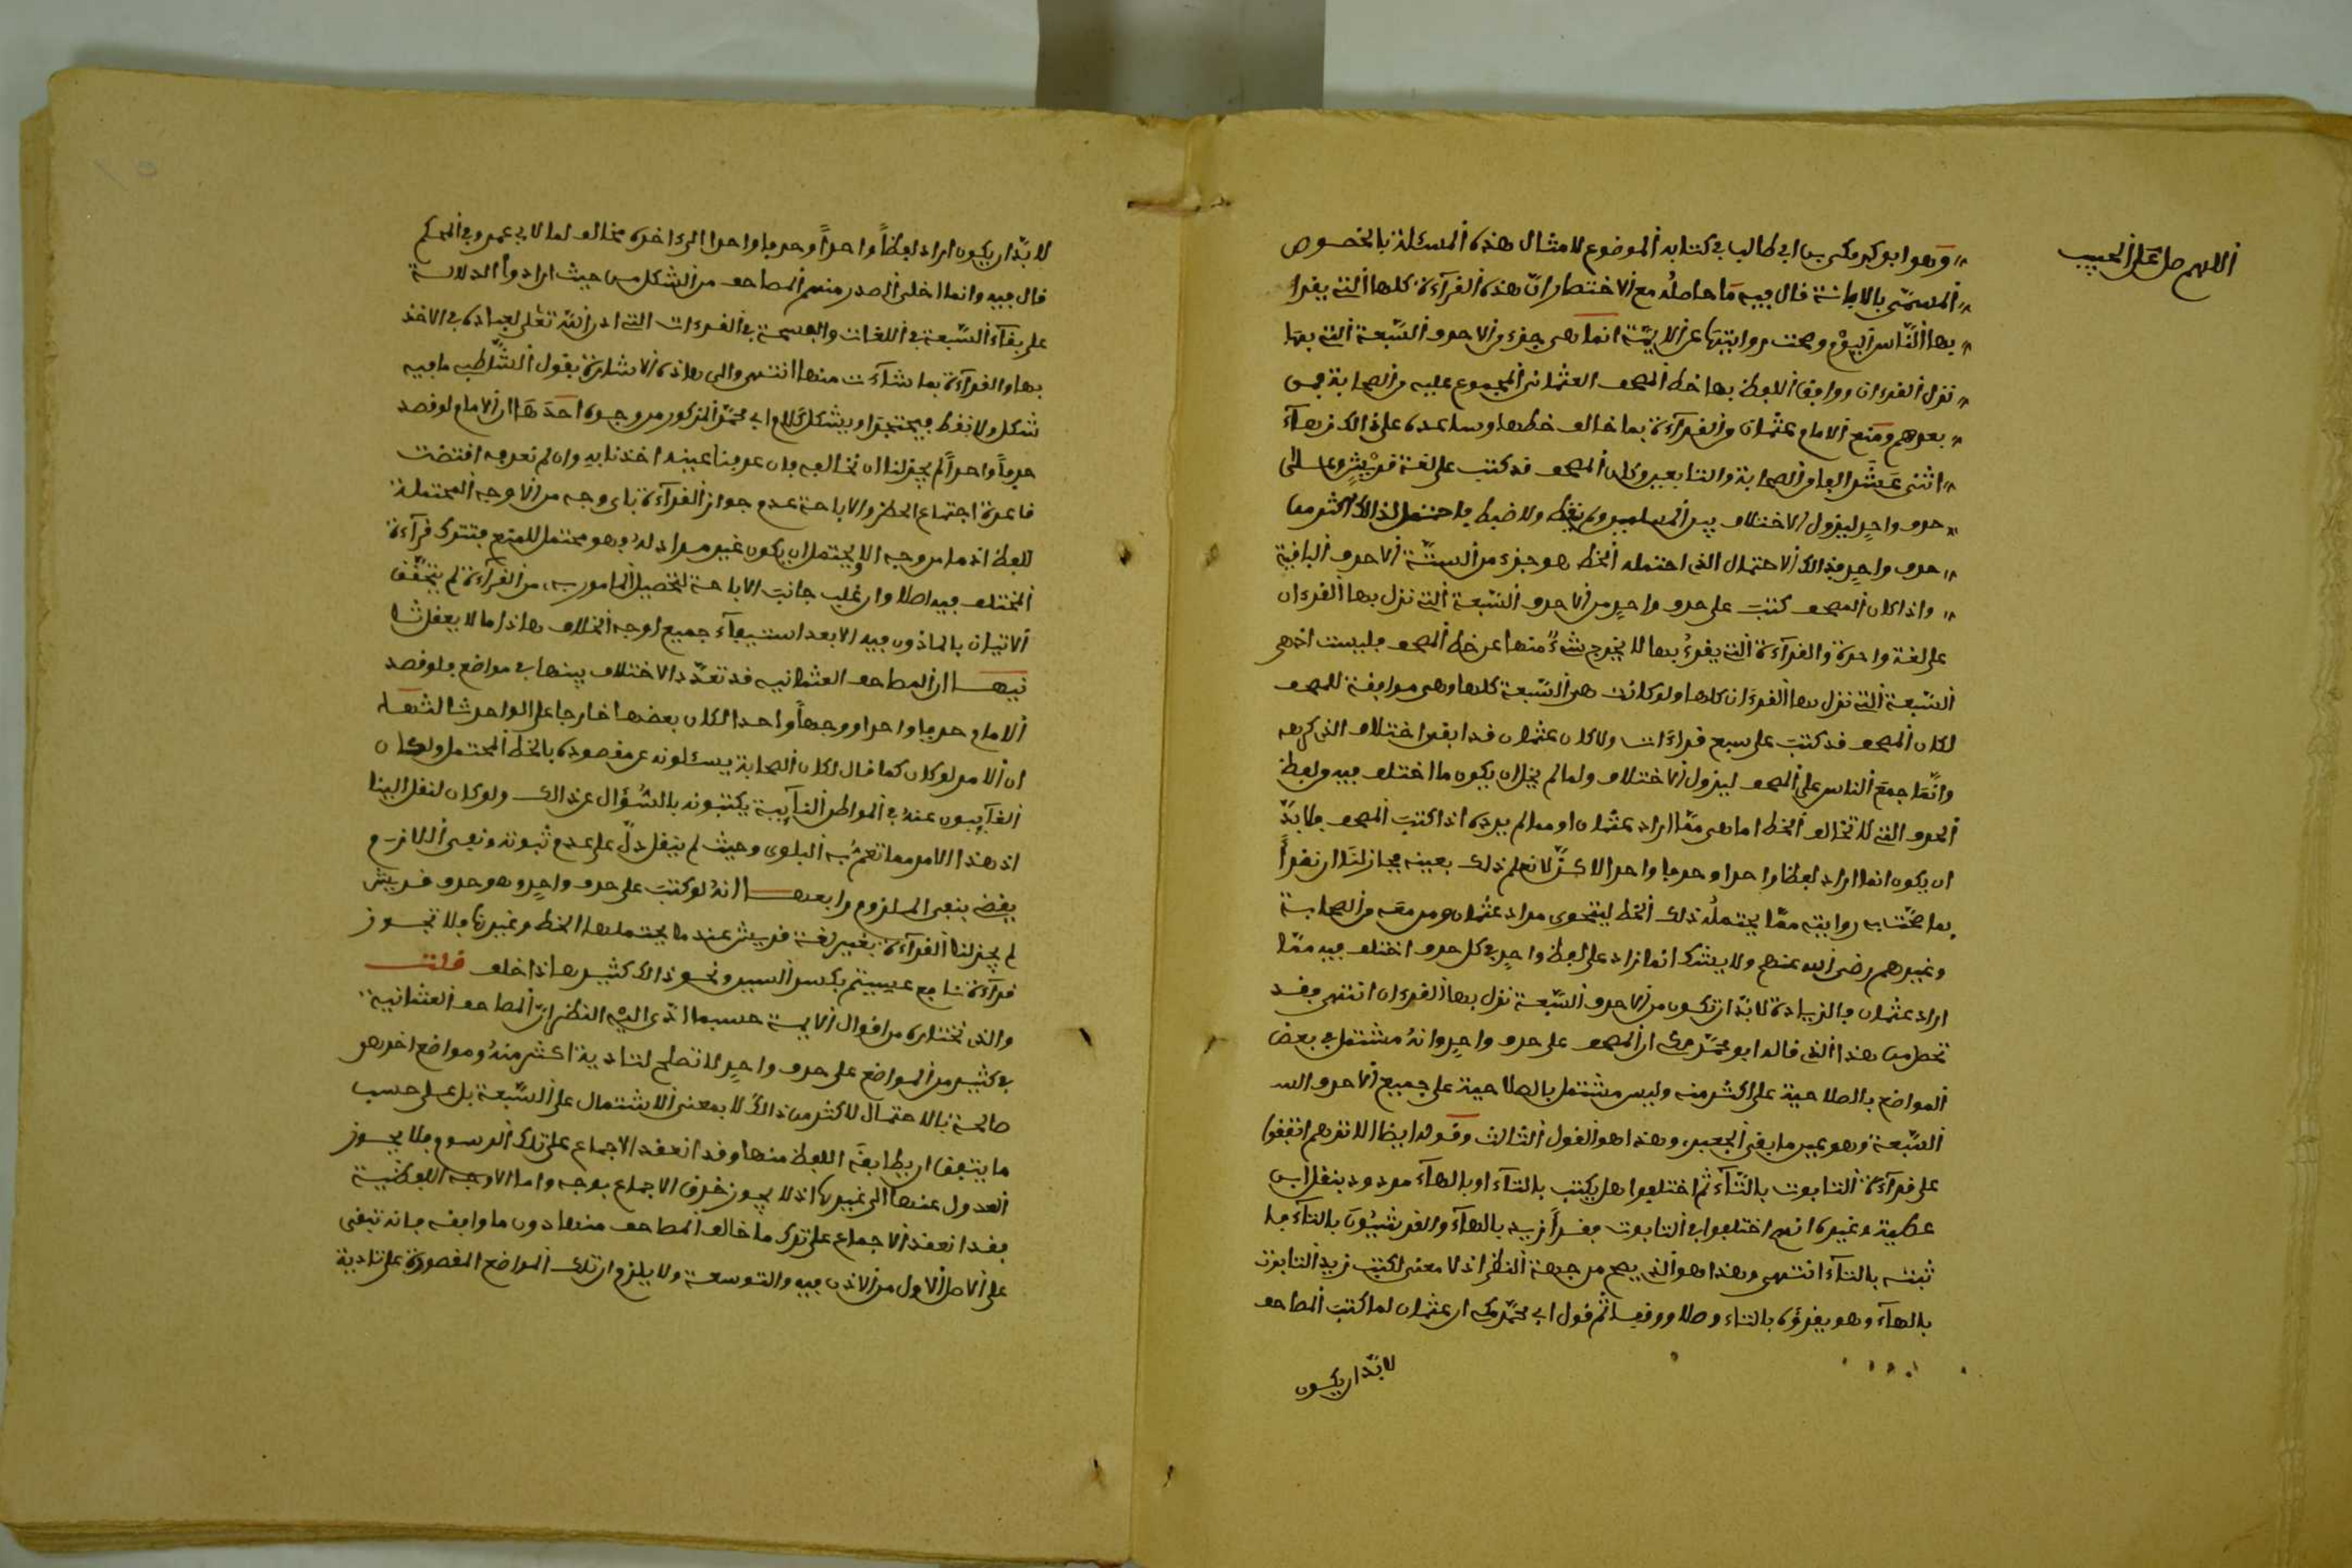 اللهم صل على الحبيب
وهو ابو بكر مكي بن ابي طالب في كتابه الموضوع لامثال هذه المسئلة بالخصوص
المسمى بالابانة قال فيه ما حاصله مع الاختصار ان هذه القرآءة كلها التي يقرا
بها الناس اليوم وصحت روايتها عن الايمة انما هي جزء من الاحرف السبعة التي بها
نزل القرءان ووافق اللفظ بها خط المصحف العثماني المجموع عليه من الصحابة فمن
بعدهم ومنع الامام عثمان من القرآءة بما خالف خطها وساعده على ذالك زهآء
اثنى عشر الفا من الصحابة والتابعين وكان المصحف قد كتب على لغة قريش وعلى
حرف واحد ليزول الاختلاف بين المسلمين ولم ينقط ولا ضبط فاحتمل لذالك اكثر من
حرف واحد فذالك الاحتمال الذي احتمله الخط هو جزء من الستة الاحرف الباقية
واذا كان المصحف كتب على حرف واحد من الاحرف السبعة التي نزل بها القرءان
على لغة واحدة والقرآءة التي يقرء بها لا يخرج شيء منها عن خط المصحف فليست اذا هي
السبعة التي نزل بها القرءان كلها ولو كانت هي السبعة كلها وهي موافقة للمصحف
لكان المصحف قد كتب على سبع قراءات ولكان عثمان قد ابقى اختلاف الذي كرهه
وانما جمع الناس على المصحف ليزول الاختلاف ولما لم يخل ان يكون ما اختلف فيه من لفظ
الحرف التي لا تخالف الخط اما هي مما اراد عثمان او مما لم يرده اذا كتب المصحف فلا بد
ان يكون انما اراد لفظا واحدا وحرفا واحدا لاكن لا نعلم ذلك بعينه فجاز لنا ان نقرأ
بما صحت به روايته مما يحتمله ذلك الخط ليتحرى مراد عثمان ومن معه من الصحابة
وغيرهم رضي الله عنهم ولا يشك انما زاد على لفظ واحد في كل حرف اختلف فيه مما
اراد عثمان فالزيادة لا بد ان تكون من الاحرف السبعة نزل بها القرءان انتهى فقد
تحصل من هذا الذي قاله ابو محمد مكي ان المصحف على حرف واحد وانه مشتمل في بعض
المواضع بالصلاحية على اكثر منه وليس مشتمل بالصلاحية على جميع الاحرف الس
السبعة وهو عين ما بقي الجعبر، وهذا هو القول الثالث وقوله ايضا الا تراهم اتفقوا
على قرآءة التابوت بالتآء ثم اختلفوا هل يكتب بالتآء او بالهآء مردود بنقل ابن
عطية وغيره انهم اختلفوا في التابوت فقرأ زيد بالهآء والقرشيون بالتآء فا
ثبتته بالتآء انتهى وهذا هو الذي يصح من جهة النظر اذ لا معنى لكتب زيد التابوت
بالهآء وهو يقرؤه بالتاء وصلا ووقفا ثم قول ابي محمد مكي ان عثمان لما كتب المصاحف
لا بد ان يكون
لا بد ان يكون اراد لفظا واحدا وحرفا واحدا الى اخره مخالف لما لابي عمرو في المحكم
قال فيه وانما اخلى الصدر منهم المصاحف من الشكل من حيث ارادوا الدلالة
على بقآء السبعة في اللغات والفسحة في القرءات التي اذن الله تعلى لعباده في الاخذ
بها والقرآءة بما شآءت منها انتهى والى هاذه الاشارة بقول الشاطبي ما فيه
شكل ولا نقط فيحتجرا ويشكل كلام ابي محمد المذكور من وجوه احدها ان الامام لو قصد
حرفا واحدا لم يجز لنا ان نخالفه فان عرفنا عينه اخذنا به وان لم نعرفه اقتضت
قاعدة اجتماع الحظر والاباحة عدم جواز القرآءة باي وجه من الاوجه المحتملة
للفظ اذ ما من وجه الا ويحتمل ان يكون غير مراد له وهو محتمل للمنع فتترك قرآءة
المختلف فيه اصلا وان غلب جانب الاباحة لتحصيل المامور به، من القرآءة لم يتحقق
الاتيان بالماذون فيه الا بعد استيفآء جميع اوجه الخلاف هاذا ما لا يعقل ثا
نيها ان المصاحف العثمانيه قد تعدد الاختلاف بينها في مواضع فلو قصد
الامام حرفا واحدا ووجها واحدا لكان بعضها خارجا على الواحد ثالثها
ان الامر لو كان كما قال لكان الصحابة يسئلونه عن مقصوده بالخط المحتمل ولكان
الغآيبون عنه في المواطن النآيية يكتبونه بالسؤال عن ذالك ولو كان لنقل الينا
اذ هذا الامر مما تعم به البلوى وحيث لم ينقل دل على عدم ثبوته ونفي اللازم
يقضي بنفي الملزوم رابعها انه لو كتب على حرف واحد وهو حرف قريش
لم يجز لنا القرآءة بغير لغة قريش عند ما يحتملها الخط وغيرها فلا تجوز
قرآءة نافع عسيتم بكسر السين ونحو ذالك كثير هاذا خلف قلت
والذي نختاره من اقوال الايمة حسبما ادى اليه النظر ان المصاحف العثمانية
في كثير من المواضع على حرف واحد لا تصلح لتادية اكثر منه ومواضع اخر هي
صالحة بالاحتمال لاكثر من ذالك لا بمعنى الاشتمال على السبعة بل على حسب
ما يتفق ان يطابقه اللفظ منها وقد انعقد الاجماع على تلك الرسوم فلا يجوز
العدول عنها الى غيرها اذ لا يجوز خرق الاجماع بوجه واما الاوجه اللفظية
فقد انعقد الاجماع على ترك ما خالف المصاحف منها دون ما وافقه فانه تبقى
على الاصل الاول من الاذن فيه والتوسعة ولا يلزم ان تلك المواضع المقصورة على تادية